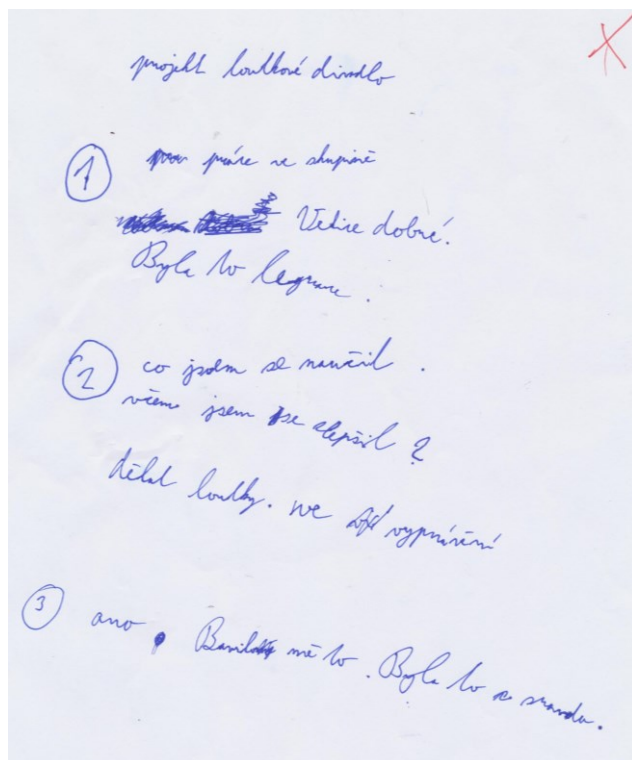 projekt loutkové divadlo
1 práce ve skupině
Velice dobré.
Byla to legrace.
2 co jsem se naučil.
včem jsem se zlepšil?
dělat loutky. ve vyprávění
3 ano, Bavilo mě to. Byla to sranda.